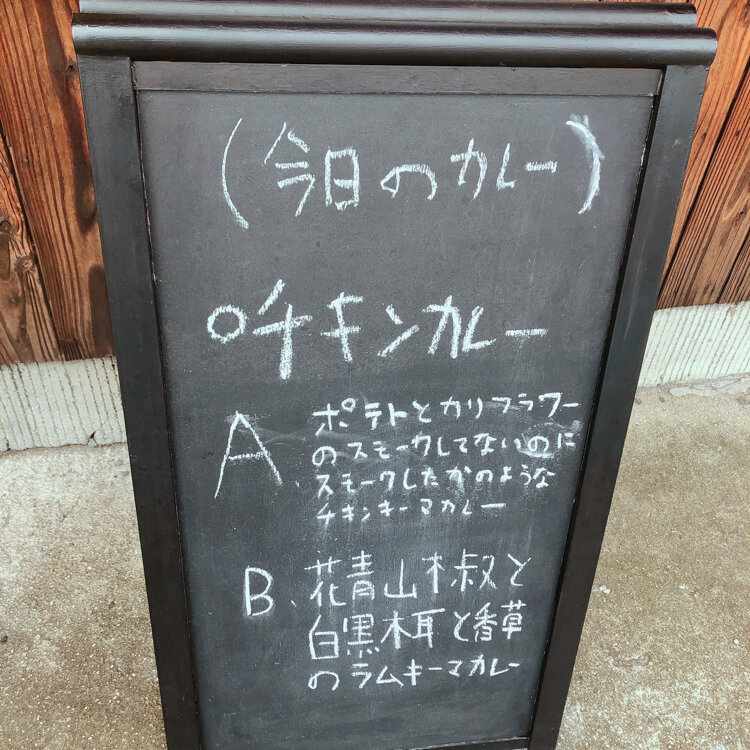 (今日のカレー)
○チキンカレー
A、ポテトとカリフラワー
のスモークしてないのに
スモークしたかのような
チキンキーマカレー
B、花青山椒と
白黒木耳と香草
のラムキーマカレー